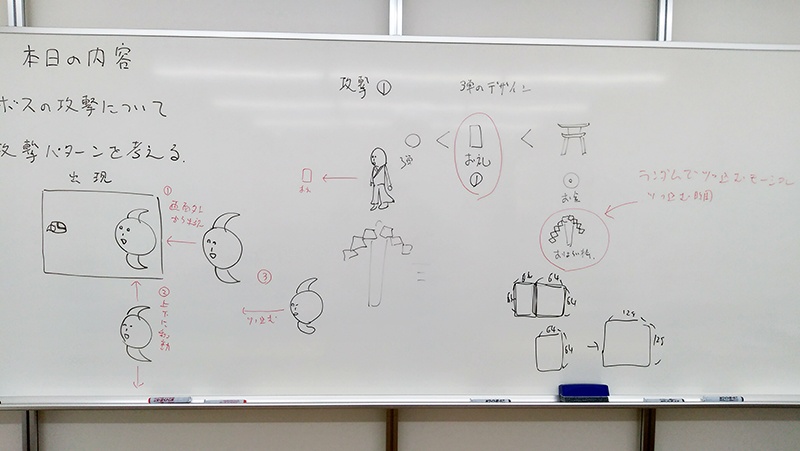 本日の内容
ボスの攻撃について
攻撃パターンを考える.
出現
①
画面外から出現
②
上下に移動
③
ツッ込む
攻撃①
弾のデザイン
弾
<
お札
①
<
お金
おはらい棒.
ランダムでツッ込むモーション
ツッ込む時間
64
64
64
64
64
64
128
128